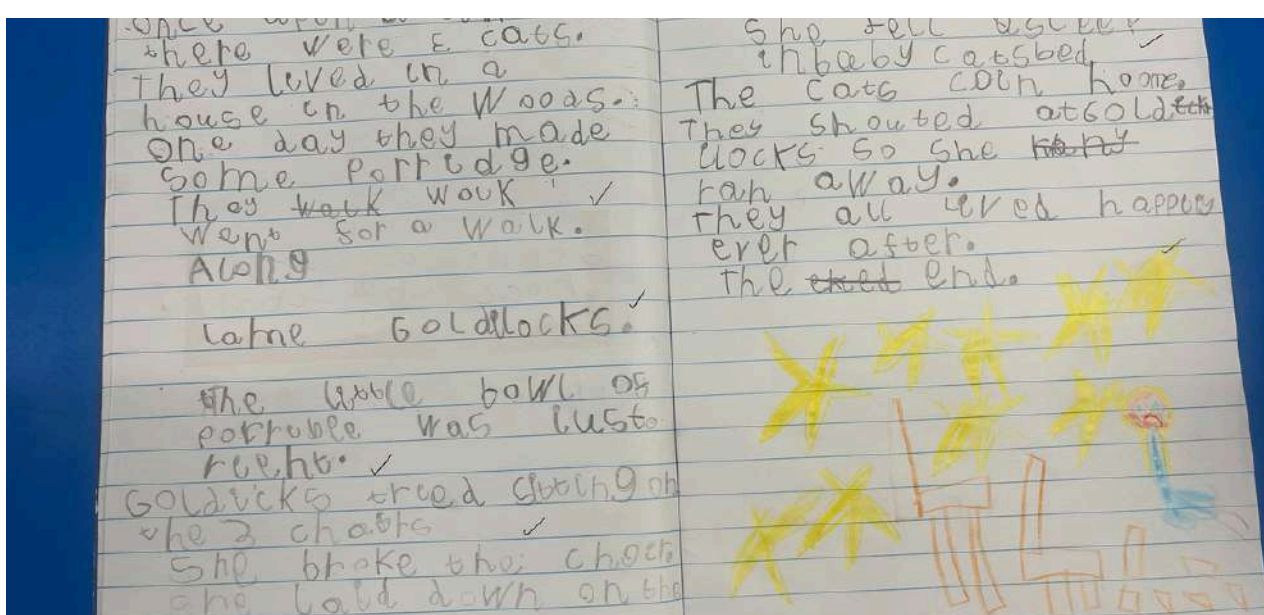 Once upon a
there were 3 cats.
They lived in a
house in the Woods.
One day they made
some Porridge.
They walk wolk
went for a walk.
Along
came Goldilocks.
the little bowl of
porruble was lust
rieht.
Goldicks tried sitting on
the 3 chairs
She broke the chair
She laid down on the
She fell asleep
in baby catsbed
The cats coin home.
They shouted at Gold
llocks so she
ran away.
They all lived happily
ever after.
The end.